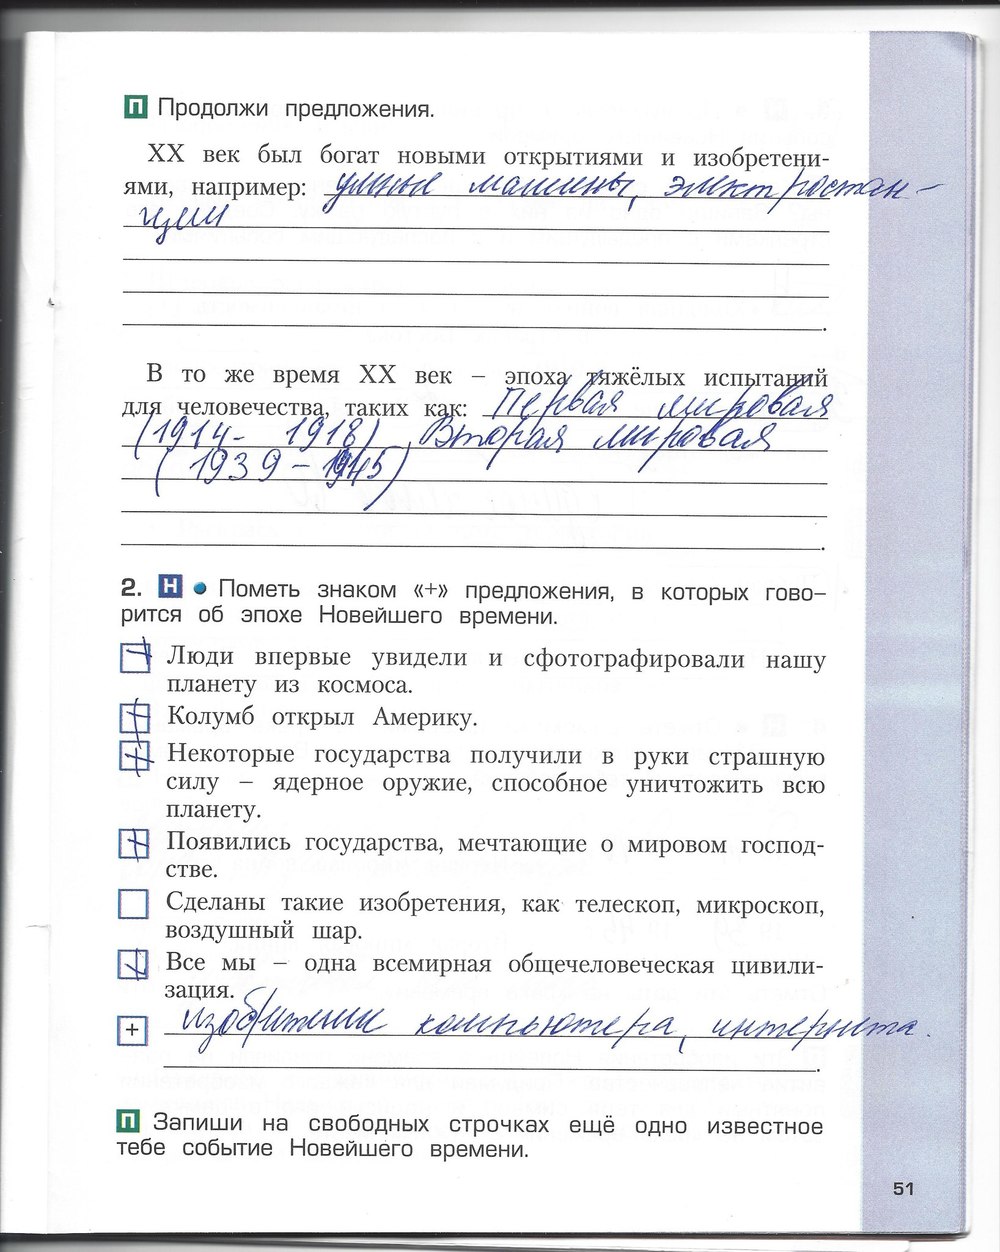 П Продолжи предложения.
XX век был богат новыми открытиями и изобретени-
ями, например: умные машины, электростан-
ции
В то же время XX век – эпоха тяжёлых испытаний
для человечества, таких как: Первая мировая
(1914- 1918), Вторая мировая
(1939-1945)
2. Н • Пометь знаком «+» предложения, в которых гово-
рится об эпохе Новейшего времени.
Люди впервые увидели и сфотографировали нашу
планету из космоса.
+ Колумб открыл Америку.
+ Некоторые государства получили в руки страшную
силу – ядерное оружие, способное уничтожить всю
планету.
+ Появились государства, мечтающие о мировом господ-
стве.
Сделаны такие изобретения, как телескоп, микроскоп,
воздушный шар.
+ Все мы – одна всемирная общечеловеческая цивили-
зация.
+ изобритение компьютера, интернета.
П Запиши на свободных строчках ещё одно известное
тебе событие Новейшего времени.
51